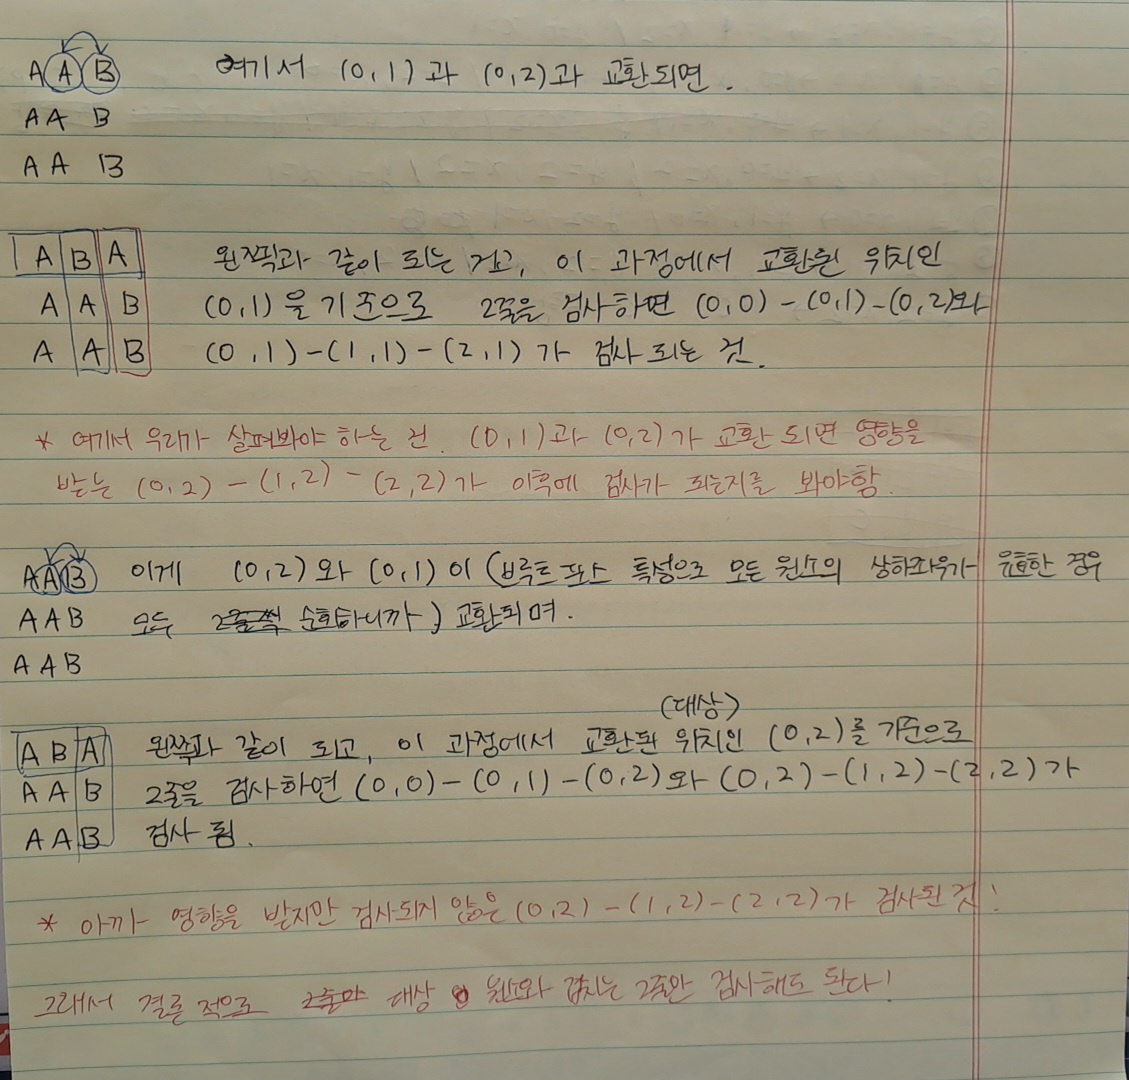 A A B 여기서 (0,1)과 (0,2)과 교환되면.
A A B
A A B
A B A 왼쪽과 같이 되는 거고, 이 과정에서 교환된 위치인
A A B (0,1)을 기준으로 2줄을 검사하면 (0,0)-(0,1)-(0,2)와
A A B (0,1)-(1,1)-(2,1)가 검사 되는 것.
* 여기서 우리가 살펴봐야 하는 건. (0,1)과 (0,2)가 교환 되면 영향을
받는 (0,2)-(1,2)-(2,2)가 이후에 검사가 되는지를 봐야함.
A A B 이게 (0,2)와 (0,1)이 (브루트 포스 특성으로 모든 원소의 상하좌우가 유효한 경우
A A B 모두 순회하니까) 교환되며.
A A B
(대상)
A B A 왼쪽과 같이 되고, 이 과정에서 교환된 위치인 (0,2)를 기준으로
A A B 2줄을 검사하면 (0,0)-(0,1)-(0,2)와 (0,2)-(1,2)-(2,2)가
A A B 검사 됨.
* 아까 영향을 받지만 검사되지 않은 (0,2)-(1,2)-(2,2)가 검사된 것!
그래서 결론 적으로 대상 원소와 겹치는 2줄만 검사해도 된다!